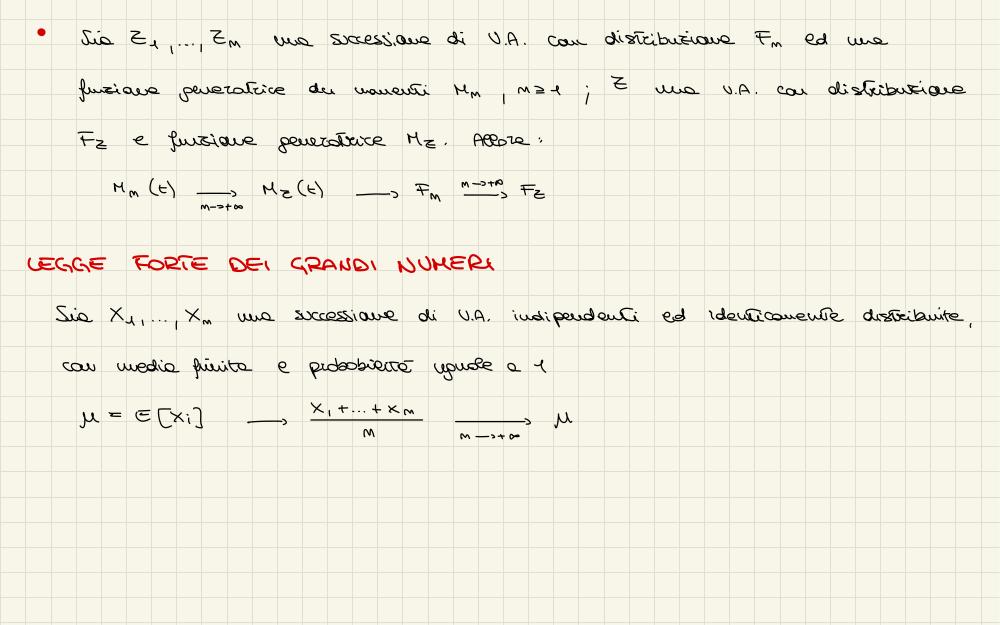 • Sia Z₁,..., Zₙ una successione di V.A. con distribuzione Fₙ ed una
funzione generatrice dei momenti Mₙ , n≥1 ; Z una V.A. con distribuzione
F_Z e funzione generatrice M_Z. Allora:
Mₙ(t) ⟶ M_Z(t) ⟶ Fₙ ⟶ F_Z
n→+∞ n→+∞
LEGGE FORTE DEI GRANDI NUMERI
Sia X₁,..., Xₙ una successione di V.A. indipendenti ed identicamente distribuite,
con media finita e probabilità uguale a 1
μ = E[Xi] ⟶ (X₁+...+Xₙ)/n ⟶ μ
n→+∞